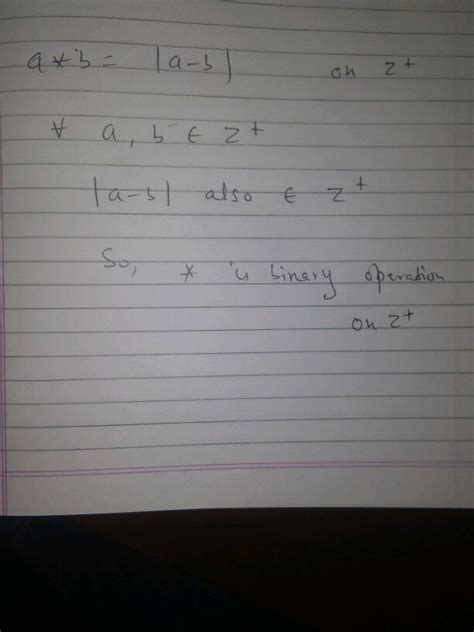 a * b = |a-b| on z⁺
∀ a, b ∈ z⁺
|a-b| also ∈ z⁺
So, * is binary operation
on z⁺